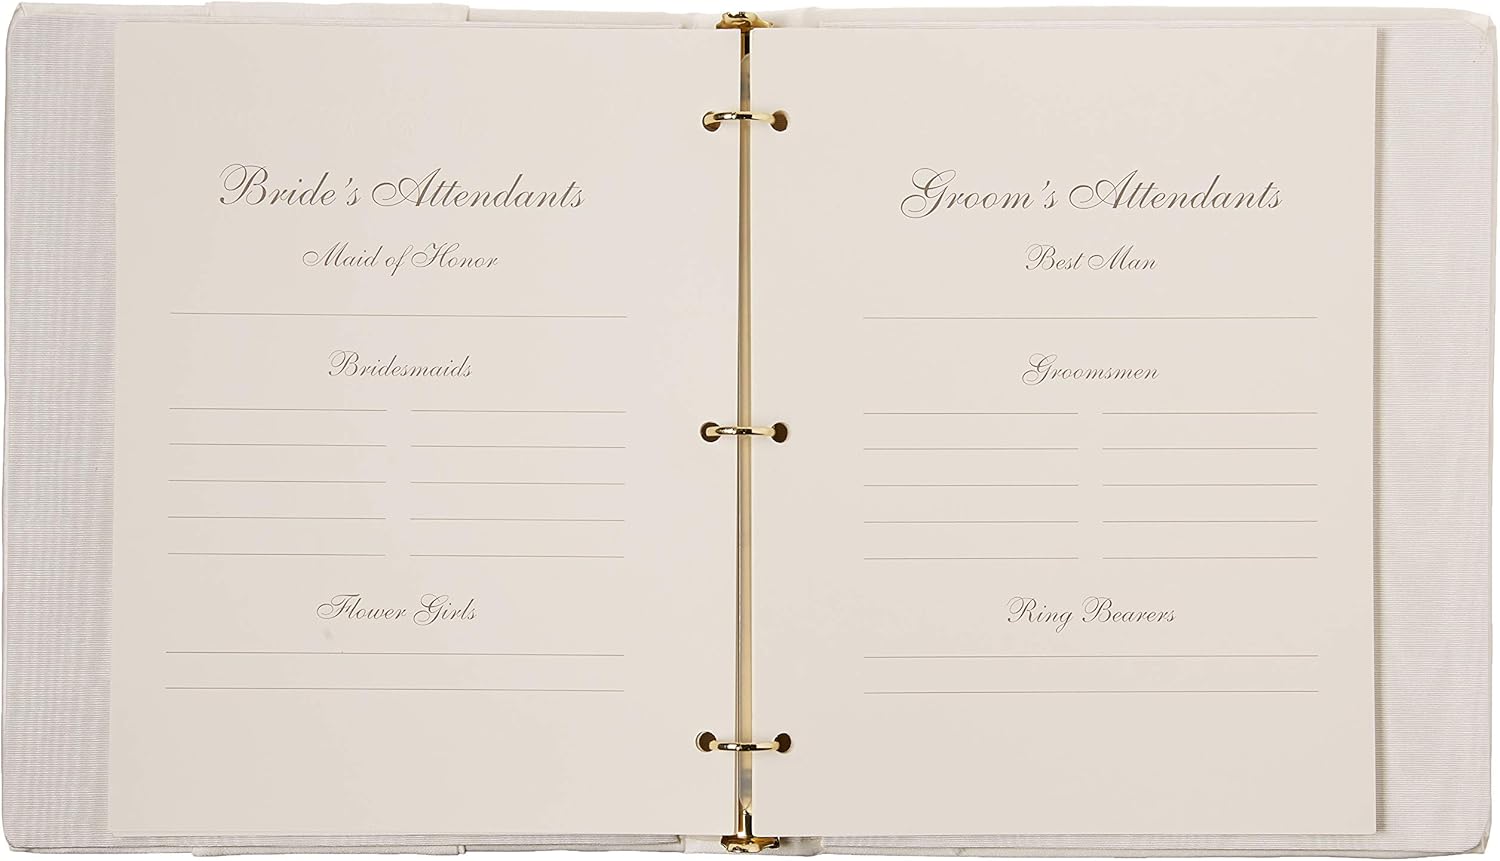 Bride's Attendants
Maid of Honor
Bridesmaids
Flower Girls
Groom's Attendants
Best Man
Groomsmen
Ring Bearers